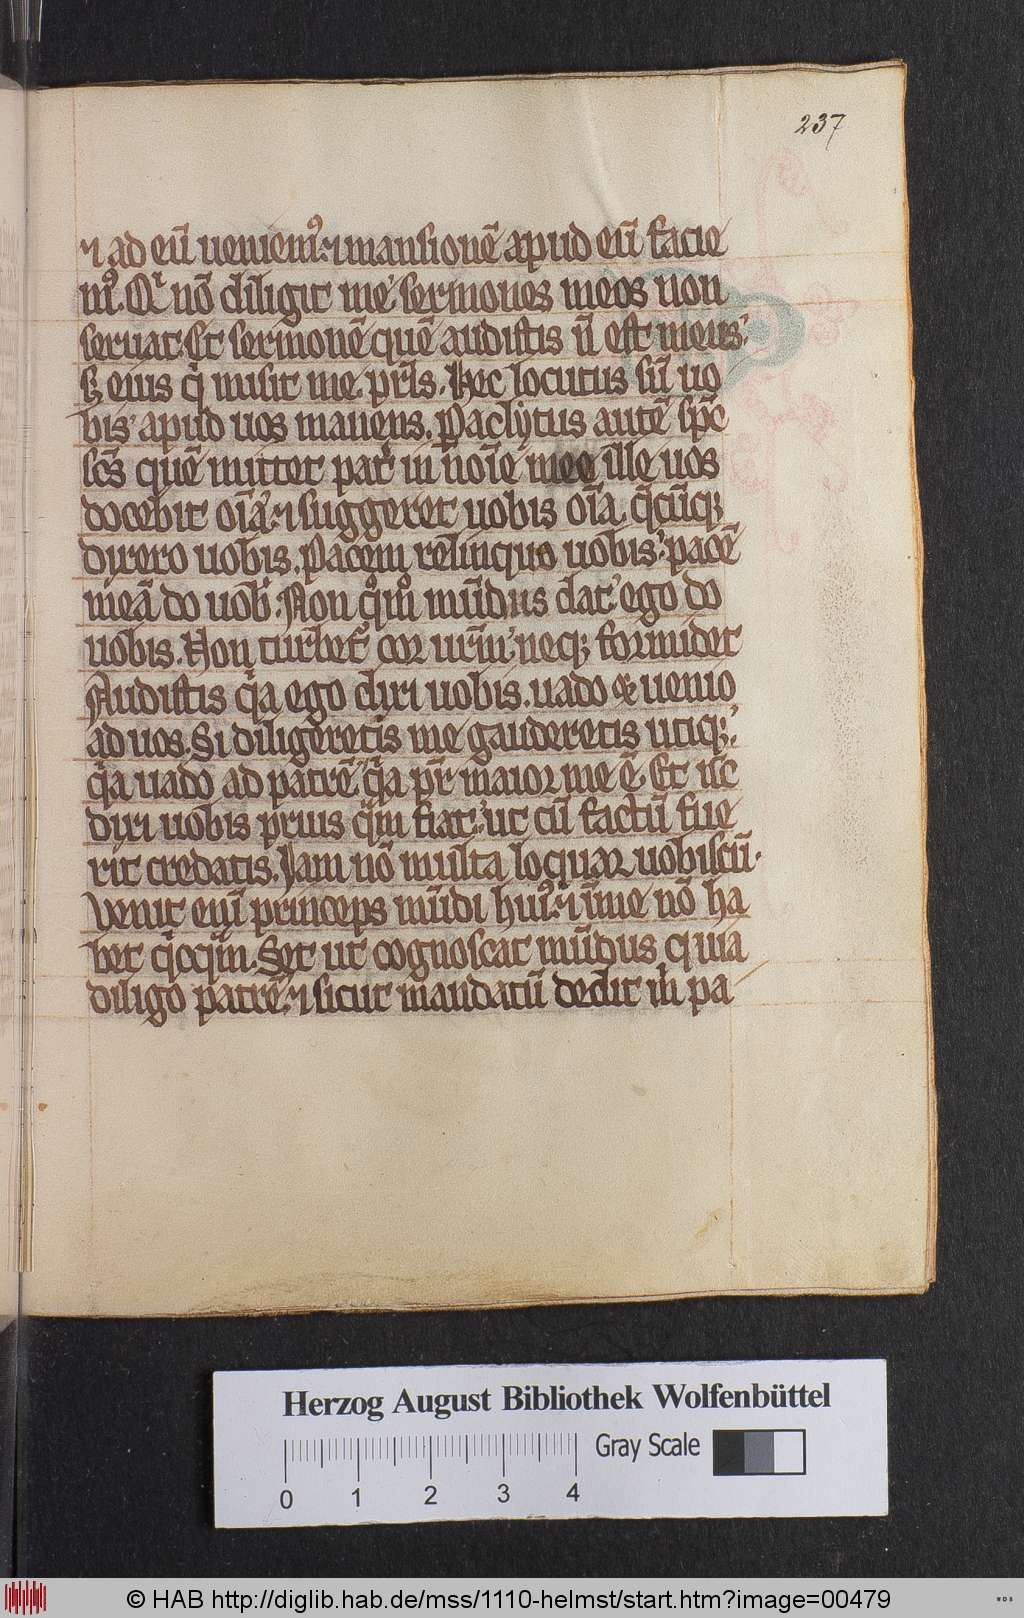 237
⁊ ad eū ueniemꝰ. ⁊ mansionē apud eū facie
mꝰ. Qͥ nō diligit me sermones meos non
seruat. Et sermonē quē audistis n̄ est meus.
sꝫ eius qͥ misit me pr̄is. Hec locutus sū uo
bis apud uos manens. Paͣclytus autē sp̄c
sc̄s quē mittet pat̉ in noīe meo ille uos
docebit oīa. ⁊ suggeret uobis oīa q̄cūqꝫ
dixero uobis. Pacem relinquo uobis. pacē
meā do uob̉. Non qͦm mūdus dat ego do
uobis. Non turbet̉ cor ur̄m neqꝫ formidet
Audistis qͥa ego dixi uobis. uado & uenio
ad uos. Si diligeretis me gauderetis utiqꝫ.
qͥa uado ad patrē. qͥa pr̄ maior me ē. Et n̄c
dixi uobis prius qͣm fiat. ut cū factū fue
rit credatis. Iam nō multa loquar uobiscū.
Venit eni͂ princeps mūdi huiꝰ. ⁊ ī me nō ha
bet qͥcqͣm. Set ut cognoscat mūdus quia
diligo patrē. ⁊ sicut mandatū dedit m̍ pa
Herzog August Bibliothek Wolfenbüttel
Gray Scale
0 1 2 3 4
© HAB http://diglib.hab.de/mss/1110-helmst/start.htm?image=00479